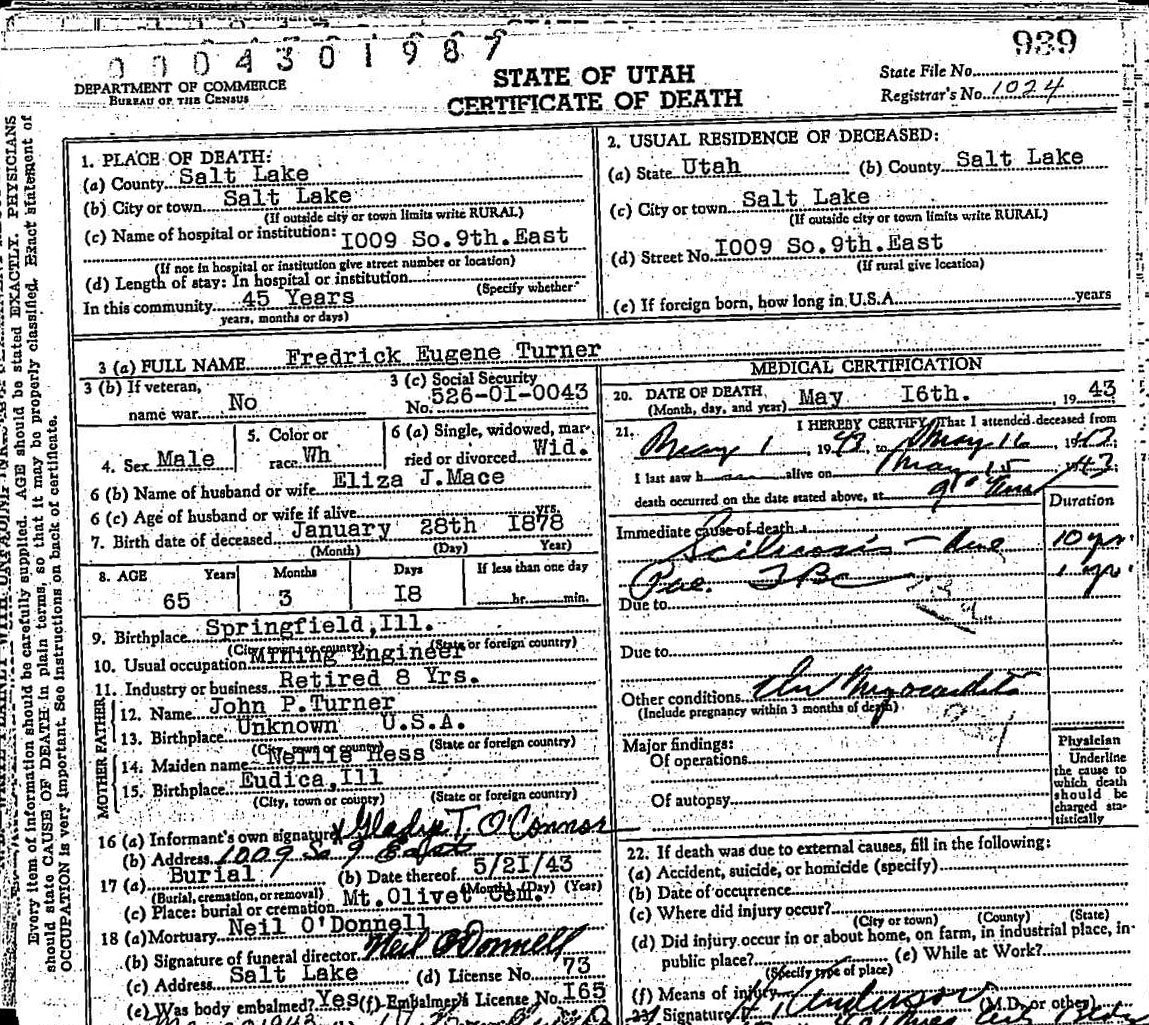 0004301987
939
DEPARTMENT OF COMMERCE
BUREAU OF THE CENSUS
STATE OF UTAH
CERTIFICATE OF DEATH
State File No.
Registrar's No. 1024
Every item of information should be carefully supplied. AGE should be stated EXACTLY. PHYSICIANS
should state CAUSE OF DEATH in plain terms, so that it may be properly classified. Exact statement of
OCCUPATION is very important. See instructions on back of certificate.
1. PLACE OF DEATH:
(a) County Salt Lake
(b) City or town Salt Lake
(If outside city or town limits write RURAL)
(c) Name of hospital or institution: I009 So.9th.East
(If not in hospital or institution give street number or location)
(d) Length of stay: In hospital or institution
(Specify whether
In this community 45 Years
years, months or days)
2. USUAL RESIDENCE OF DECEASED:
(a) State Utah (b) County Salt Lake
(c) City or town Salt Lake
(If outside city or town limits write RURAL)
(d) Street No. I009 So.9th.East
(If rural give location)
(e) If foreign born, how long in U.S.A. years
3 (a) FULL NAME Fredrick Eugene Turner
3 (b) If veteran, name war No
3 (c) Social Security No. 526-0I-0043
4. Sex Male
5. Color or race Wh
6 (a) Single, widowed, married or divorced Wid.
6 (b) Name of husband or wife Eliza J.Mace
6 (c) Age of husband or wife if alive yrs.
7. Birth date of deceased January 28th I878
(Month) (Day) Year)
8. AGE Years Months Days If less than one day
65 3 I8 hr. min.
9. Birthplace Springfield,Ill.
(City, town or county) (State or foreign country)
10. Usual occupation Mining Engineer
11. Industry or business Retired 8 Yrs.
FATHER
12. Name John P.Turner
13. Birthplace Unknown U.S.A.
(City, town or county) (State or foreign country)
MOTHER
14. Maiden name Nellie Hess
15. Birthplace Eudica,Ill
(City, town or county) (State or foreign country)
16 (a) Informant's own signature x Gladys T. O'Connor
(b) Address 1009 So 9 East
17 (a) Burial (b) Date thereof 5/21/43
(Burial, cremation, or removal) (Month) (Day) (Year)
(c) Place: burial or cremation Mt.Olivet Cem.
18 (a) Mortuary Neil O'Donnell
(b) Signature of funeral director Neil O'Donnell
(c) Address Salt Lake (d) License No. 73
(e) Was body embalmed? Yes (f) Embalmer's License No. I65
MEDICAL CERTIFICATION
20. DATE OF DEATH May I6th. , 19 43
(Month, day, and year)
21. I HEREBY CERTIFY, That I attended deceased from
May 1 1943, to May 16 19
I last saw h alive on May 15 1943
death occurred on the date stated above, at
Duration
Immediate cause of death
Scilicosis 10 yrs.
TBC 1 yr.
Due to
Due to
Other conditions Myocarditis
(Include pregnancy within 3 months of death)
Major findings:
Of operations
Of autopsy
Physician
Underline
the cause to
which death
should be
charged sta-
tistically
22. If death was due to external causes, fill in the following:
(a) Accident, suicide, or homicide (specify)
(b) Date of occurrence
(c) Where did injury occur?
(City or town) (County) (State)
(d) Did injury occur in or about home, on farm, in industrial place, in-
public place? (e) While at Work?
(Specify type of place)
(f) Means of injury
23. Signature Anderson (M.D. or other)